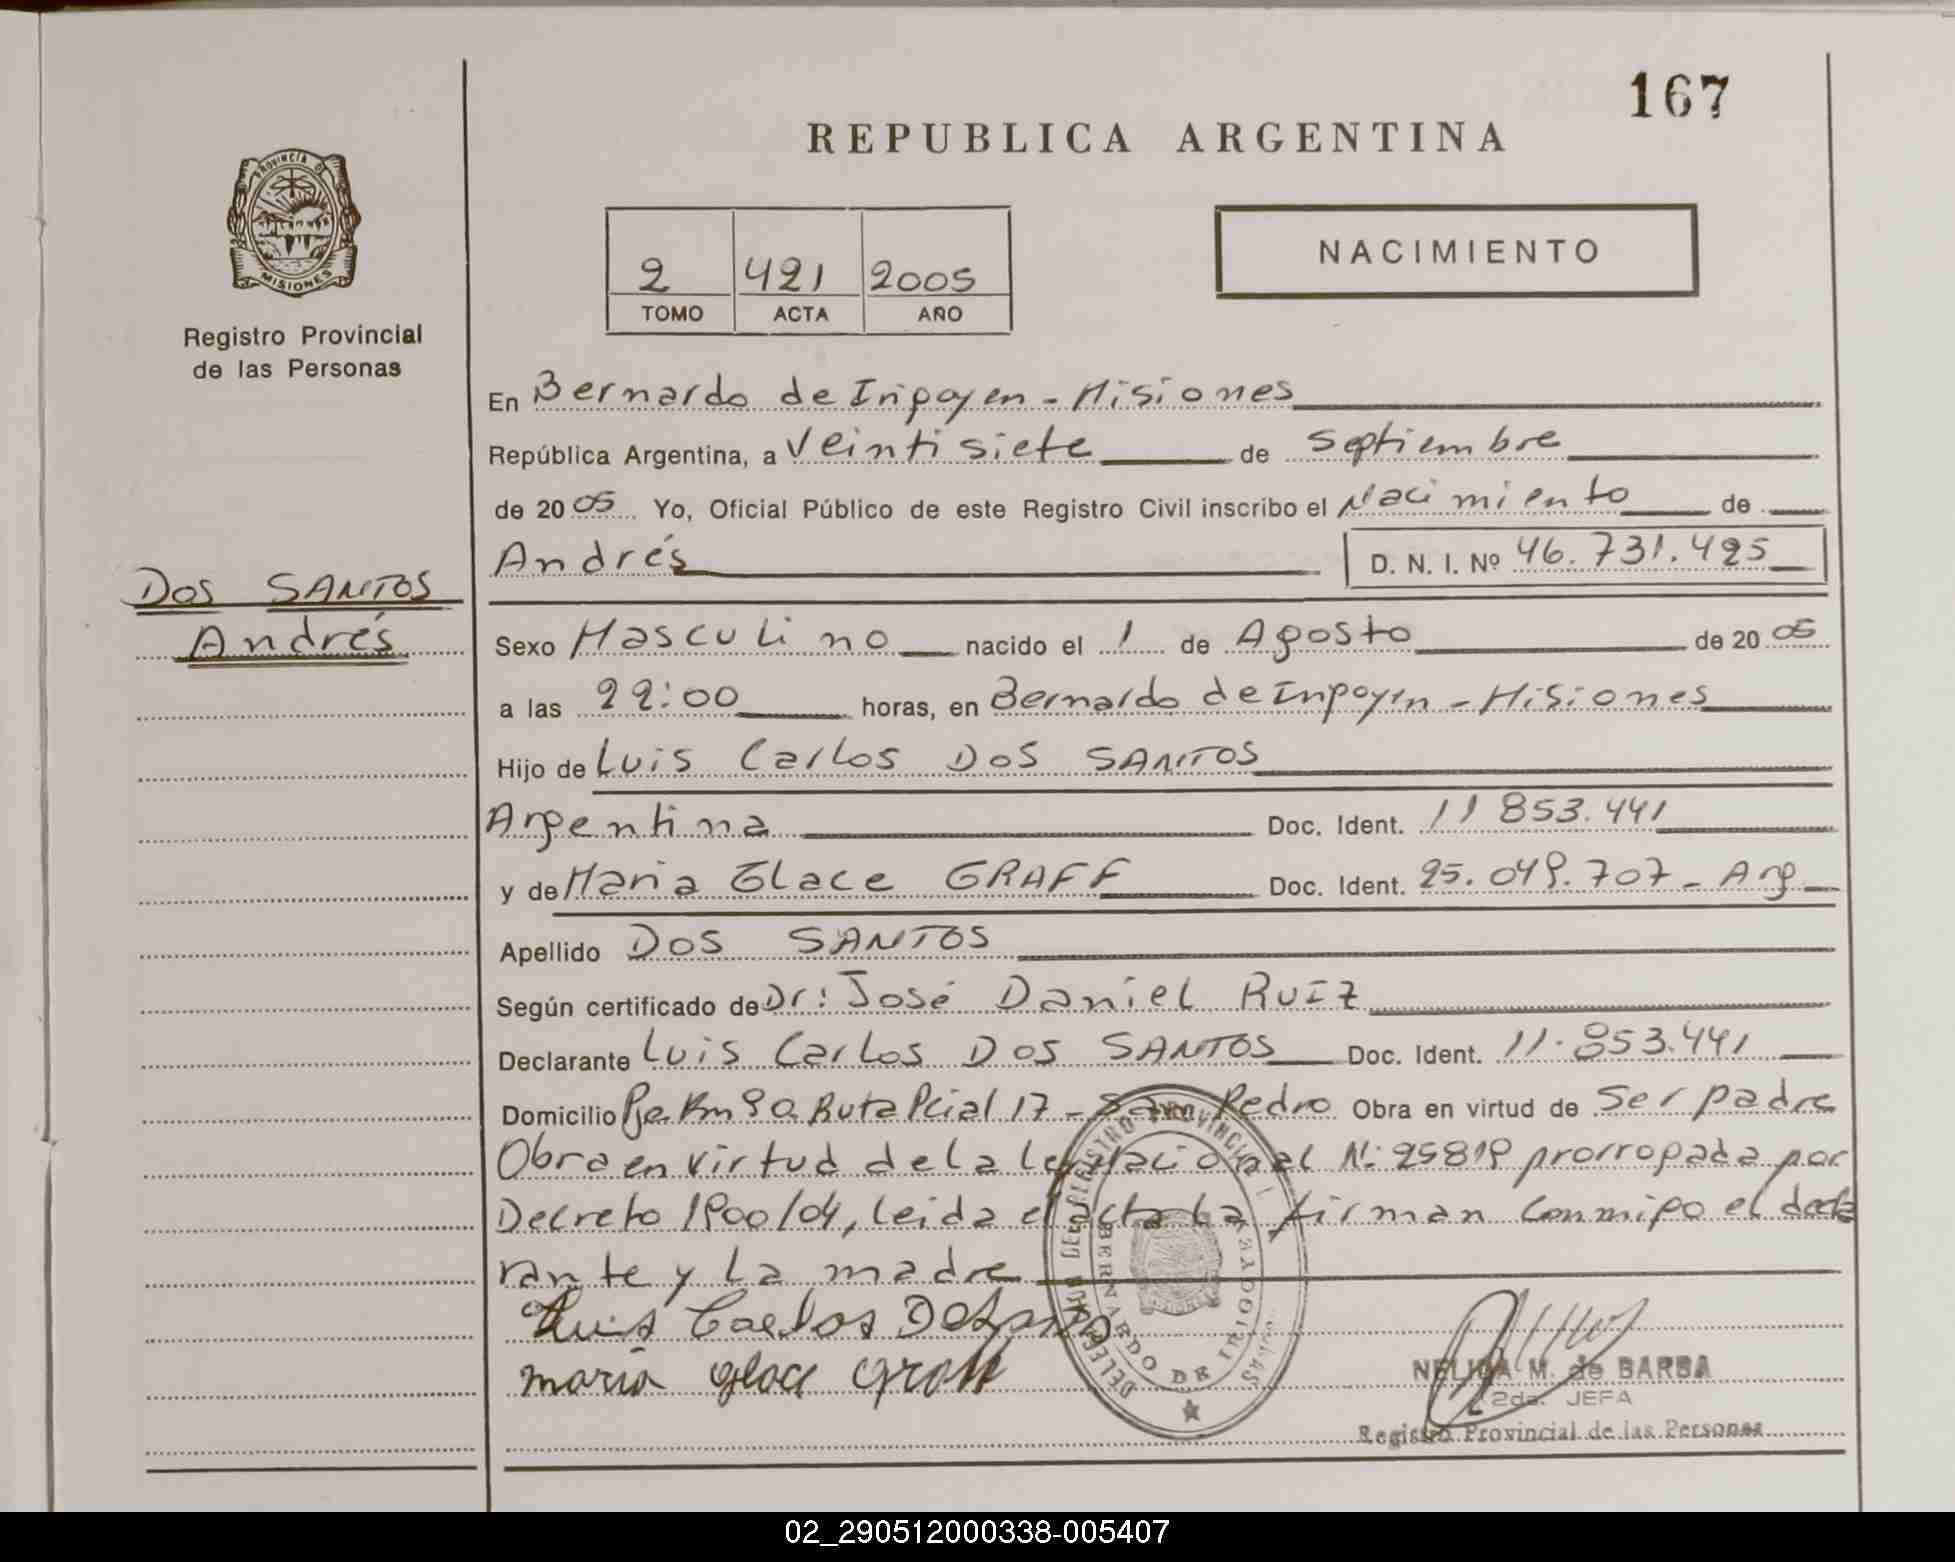 167
REPUBLICA ARGENTINA
PROVINCIA DE
MISIONES
Registro Provincial
de las Personas
2 421 2005
TOMO ACTA AÑO
NACIMIENTO
En Bernardo de Irigoyen - Misiones
República Argentina, a Veintisiete de Septiembre
de 2005 Yo, Oficial Público de este Registro Civil inscribo el Nacimiento de
Andrés D. N. I. Nº 46.731.425
DOS SANTOS
Andrés
Sexo Masculino nacido el 1 de Agosto de 2005
a las 22:00 horas, en Bernardo de Irigoyen - Misiones
Hijo de Luis Carlos DOS SANTOS
Argentina Doc. Ident. 11 853.441
y de Maria Glace GRAFF Doc. Ident. 25.049.707 - Arg
Apellido DOS SANTOS
Según certificado de Dr: José Daniel RUIZ
Declarante Luis Carlos DOS SANTOS Doc. Ident. 11.853.441
Domicilio Pje Km 90 Ruta Pcial 17 - San Pedro Obra en virtud de Ser padre
Obra en virtud de la ley Nacional N: 25819 prorrogada por
Decreto 1900/04, leida el acta la firman conmigo el decla
rante y la madre
Luis Carlos
maria glace graff
DELEGACION DEL REGISTRO PROVINCIAL
BERNARDO DE IRIGOYEN
NELIDA M. de BARBA
2da. JEFA
Registro Provincial de las Personas
02_290512000338-005407